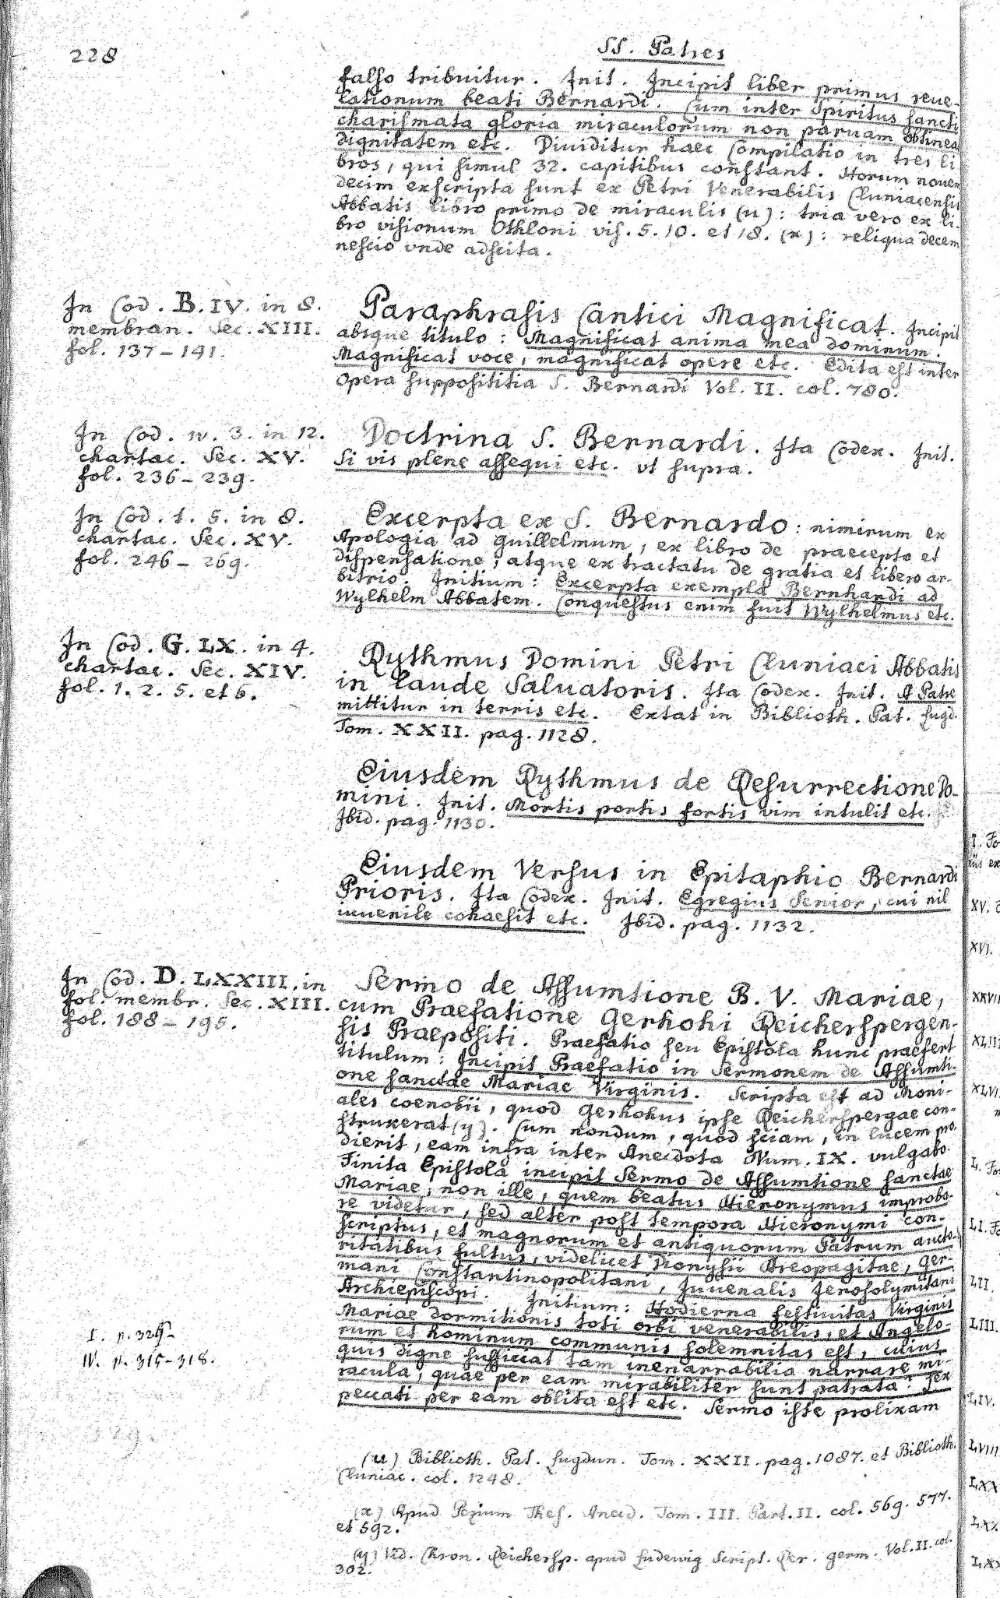 228
SS. Patres
falso tribuitur. Init. Incipit liber primus reue-
lationum beati Bernardi. Cum inter Spiritus sancti
charismata gloria miraculorum non paruam obtinea
dignitatem etc. Diuiditur haec Compilatio in tres li
bros, qui simul 32. capitibus constant. Horum nouen
decim exscripta sunt ex Petri Venerabilis Cluniacensis
Abbatis libro primo de miraculis (u): tria vero ex li-
bro visionum Othloni vis. 5. 10. et 18. (x): reliqua decem
nescio vnde adscita.
In Cod. B. IV. in 8.
membran. Sec. XIII.
fol. 137-141.
Paraphrasis Cantici Magnificat. Incipit
absque titulo: Magnificat anima mea dominum.
Magnificat voce, magnificat opere etc. Edita est inter
Opera supposititia S. Bernardi Vol. II. col. 780.
In Cod. n. 3. in 12.
chartac. Sec. XV.
fol. 236-239.
Doctrina S. Bernardi. Ita Codex. Init.
Si vis plene assequi etc. vt supra.
In Cod. 1. 5. in 8.
chartac. Sec. XV.
fol. 246-269.
Excerpta ex S. Bernardo: nimirum ex
Apologia ad Guillelmum, ex libro de praecepto et
dispensatione, atque ex tractatu de gratia et libero ar-
bitrio. Initium: Excerpta exempla Bernhardi ad
Wylhelm Abbatem. Conquestus enim fuit Wylhelmus etc.
In Cod. G. LX. in 4.
chartac. Sec. XIV.
fol. 1. 2. 5. et 6.
Rythmus Domini Petri Cluniaci Abbatis
in laude Saluatoris. Ita Codex. Init. A Patre
mittitur in terris etc. Extat in Biblioth. Pat. Lugd.
Tom. XXII. pag. 1128.
Eiusdem Rythmus de Resurrectione Do-
mini. Init. Mortis portis fortis vim intulit etc.
Ibid. pag. 1130.
Eiusdem Versus in Epitaphio Bernardi
Prioris. Ita Codex. Init. Egregius Senior, cui nil
iuuenile cohaesit etc. Ibid. pag. 1132.
In Cod. D. LXXIII. in
fol. membr. Sec. XIII.
fol. 188-195.
Sermo de Assumtione B. V. Mariae,
cum Praefatione Gerhohi Reichersperген-
sis Praepositi. Praefatio seu Epistola hunc praefert
titulum: Incipit Praefatio in Sermonem de Assumti-
one sanctae Mariae Virginis. Scripta est ad Moni-
ales coenobii, quod Gerhohus ipse Reicherspergae con-
struxerat (y). Cum nondum, quod sciam, in lucem pro-
dierit, eam infra inter Anecdota Num. IX. vulgabo.
Finita Epistola incipit Sermo de Assumtione sanctae
Mariae, non ille, quem beatus Hieronymus improba-
re videtur, sed alter post tempora Hieronymi con-
scriptus, et magnorum et antiquorum Patrum aucto-
ritatibus fultus, videlicet Dionysii Areopagitae, Ger-
mani Constantinopolitani, Iuuenalis Ierosolymitani
Archiepiscopi. Initium: Hodierna festiuitas Virginis
Mariae dormitionis toti orbi venerabilis, et Angelo-
rum et hominum communis solemnitas est, cuius
quis digne sufficiat tam inenarrabilia narrare mi-
racula, quae per eam mirabiliter sunt patrata? Lex
peccati per eam oblita est etc. Sermo iste prolixam
I. n. 325
IV. n. 315-318.
(u) Biblioth. Pat. Lugdun. Tom. XXII. pag. 1087. et Biblioth.
Cluniac. col. 1248.
(x) Apud Pezium Thes. Anecd. Tom. III. Part. II. col. 569. 577.
et 592.
(y) Vid. Chron. Reichersp. apud Ludewig Script. Rer. germ. Vol. II. col.
302.
XV.
XVI.
XXVII
XLIII
XLVI
L. Fo
LI. Fo
LII.
LIII.
LIV.
LVIII
LXX
LXX